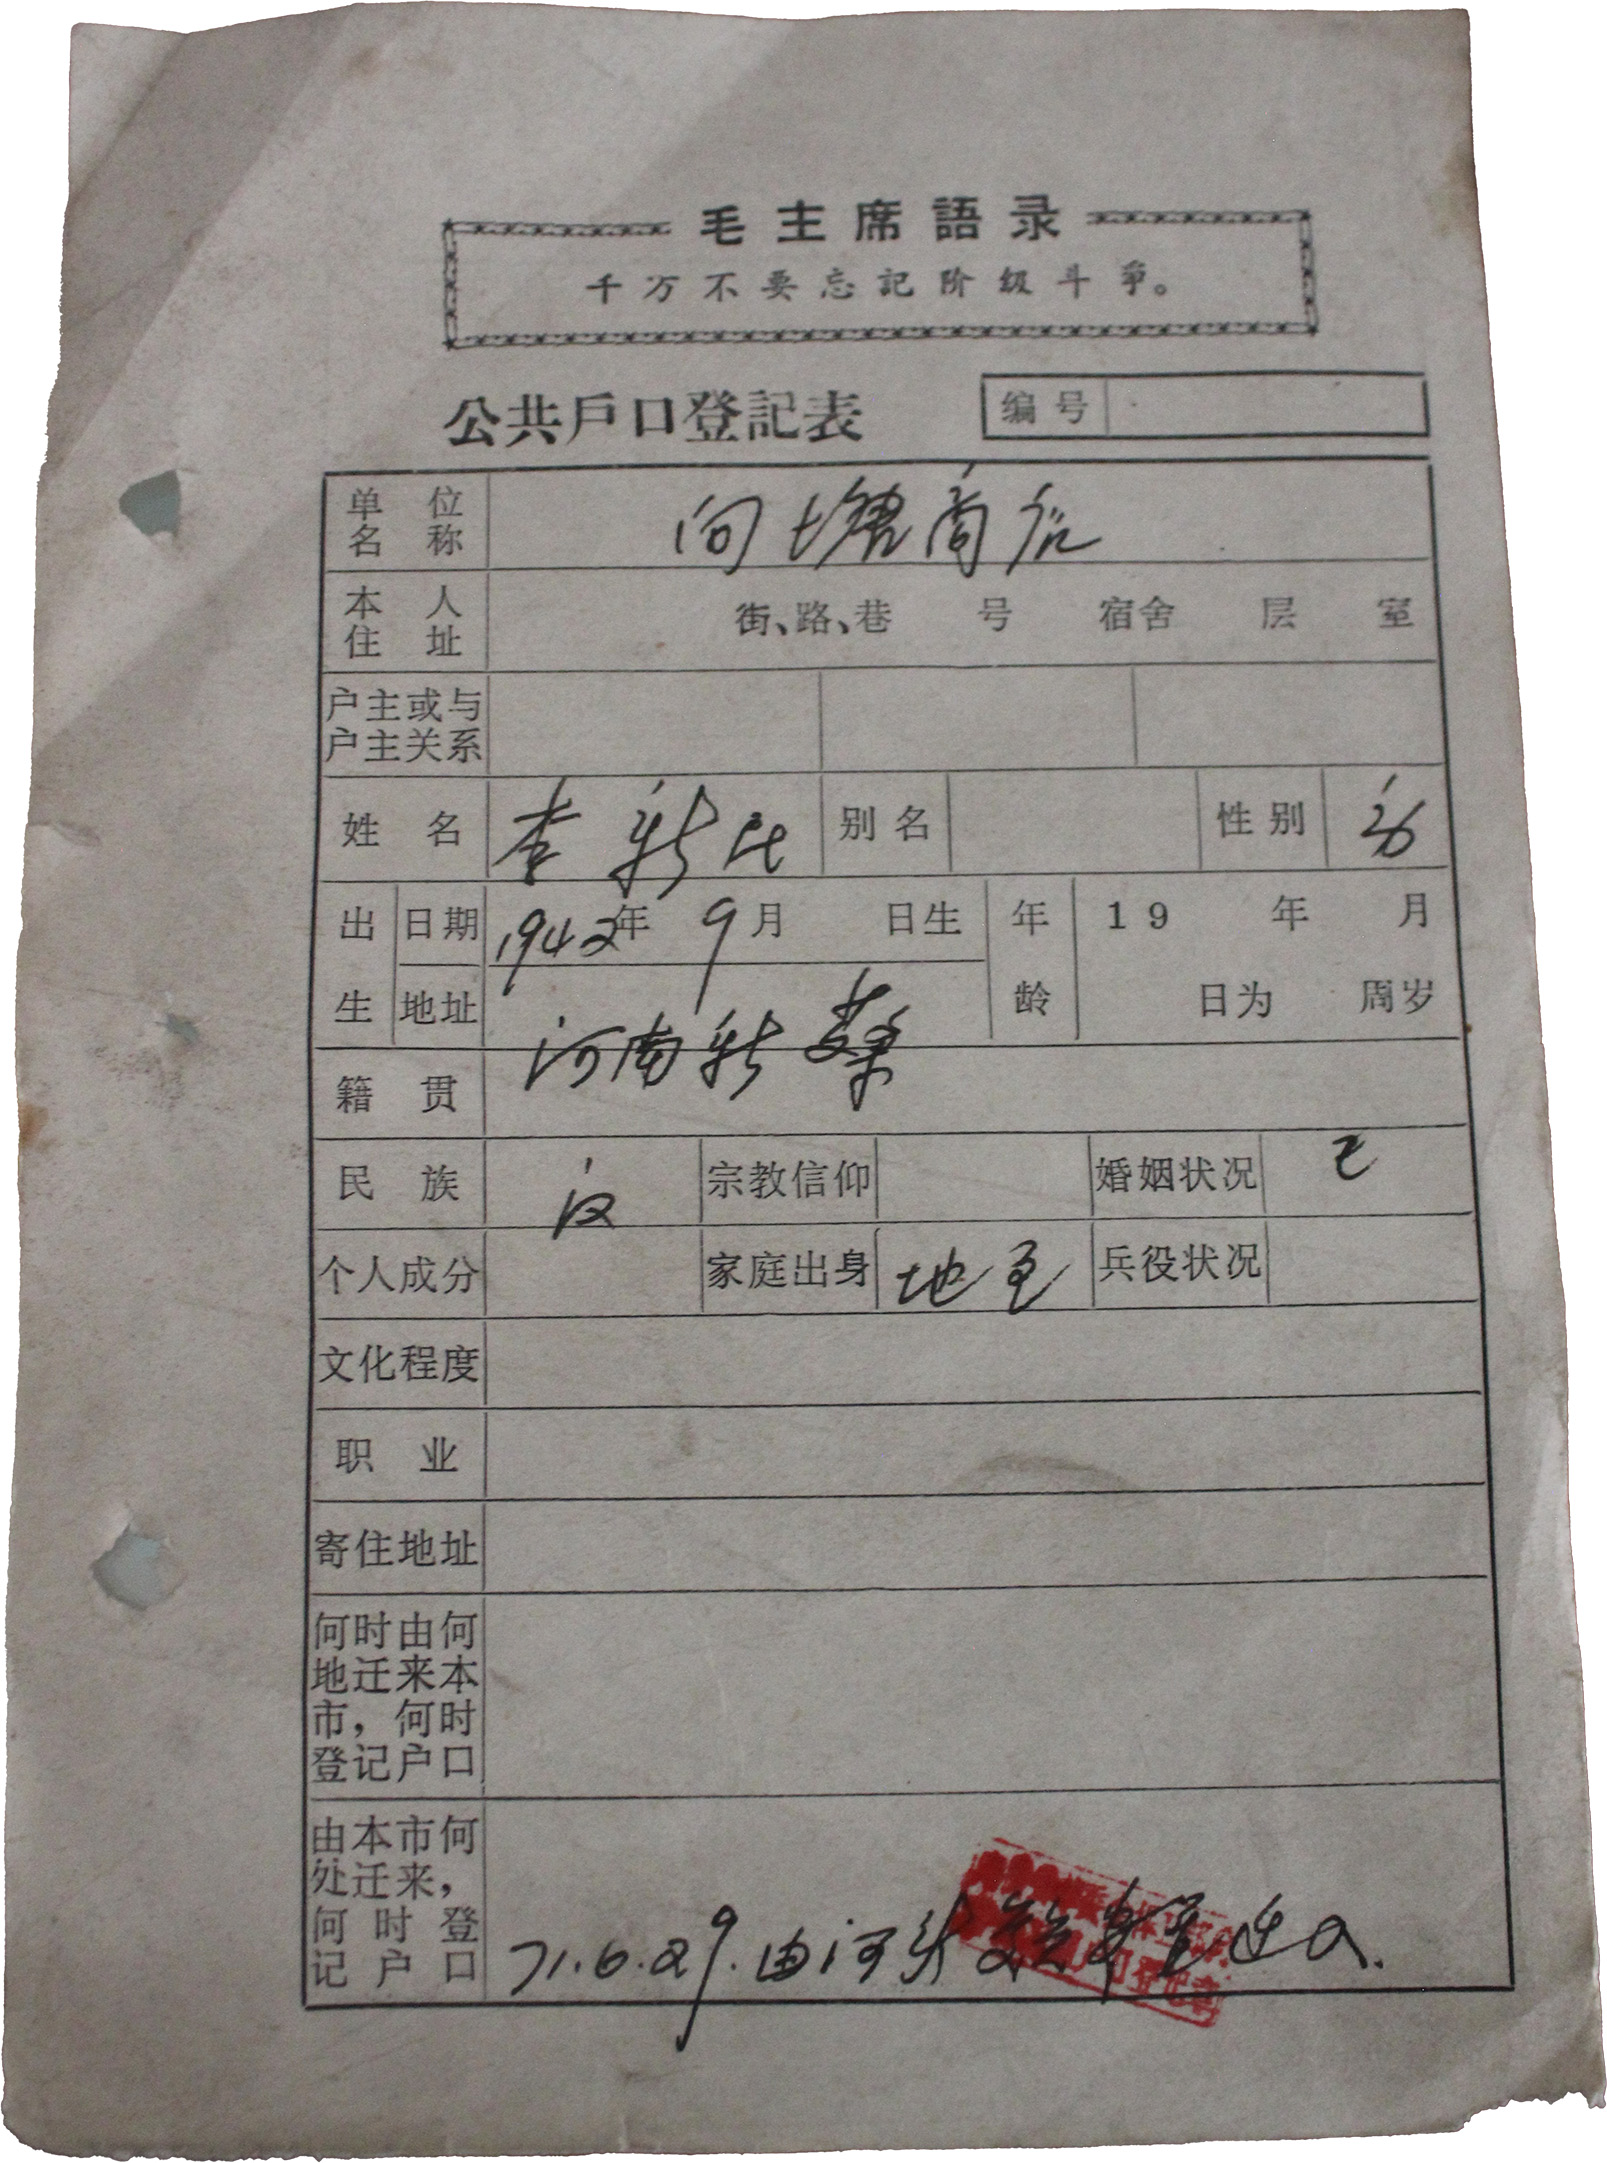 毛主席語录
千万不要忘記阶级斗爭。
公共戶口登記表
编号
单位名称 向塘商店
本人住址 街、路、巷 号 宿舍 层 室
户主或与户主关系
姓名 李新民 别名 性别 男
出生 日期 1942年 9月 日生 年龄 19 年 月
地址 河南新蔡 日为 周岁
籍贯
民族 汉 宗教信仰 婚姻状况 已
个人成分 家庭出身 地主 兵役状况
文化程度
职业
寄住地址
何时由何
地迁来本
市，何时
登记户口
由本市何
处迁来，
何时登
记户口 71.6.29.由河头 迁入.